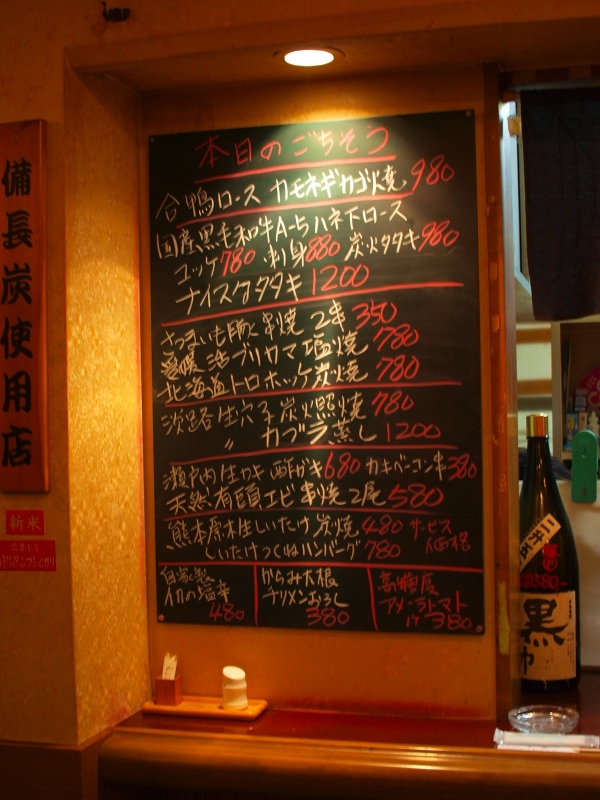 備長炭使用店
新米
本日のごちそう
合鴨ロース カモネギカゴ焼 980
国産黒毛和牛A-5ハネ下ロース
ユッケ780 刺身880 炭火タタキ980
ナイスケタタキ 1200
さつまいも豚く串焼 2串 350
愛媛 活ブリカマ塩焼 780
北海道トロホッケ炭焼 780
淡路生穴子炭火照焼 780
〃 カブラ蒸し 1200
瀬戸内生カキ 酢ガキ680 カキベーコン串380
天然有頭エビ串焼2尾 580
熊本原木生しいたけ 炭焼 480 サービス価格
しいたけつくねハンバーグ 780
自家製
イカの塩辛
480
からみ大根
チリメンおろし
380
高糖度
アメーラトマト
1ヶ 380
二升五
黒